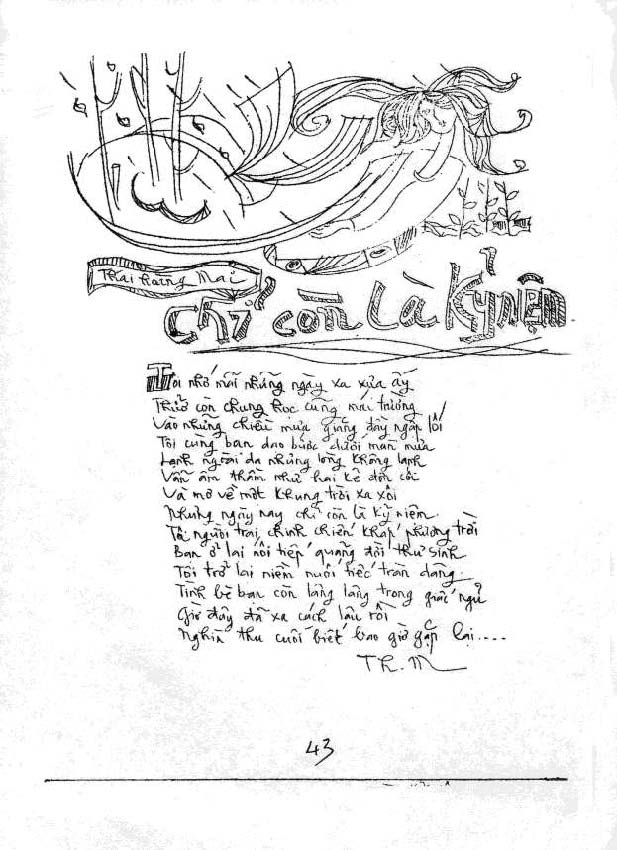 Thái Hoàng Mai
Chỉ còn là kỷ niệm
Tôi nhớ mãi những ngày xa xưa ấy
Thuở còn chung học cùng mái trường
Vào những chiều mưa giăng đầy ngập lối
Tôi cùng bạn dạo bước dưới màn mưa
Lạnh ngoài da nhưng lòng không lạnh
Vẫn âm thầm như hai kẻ đơn côi
Và mơ về một khung trời xa xôi
Nhưng ngày nay chỉ còn là kỷ niệm
Tôi người trai, chinh chiến khắp phương trời
Bạn ở lại nối tiếp quãng đời thư sinh
Tôi trở lại niềm nuối tiếc tràn dâng
Tình bè bạn còn lâng lâng trong giấc ngủ
Giờ đây đã xa cách lâu rồi
Nghìn thu cuối biết bao giờ gặp lại....
Th. M
43